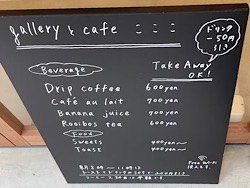 gallery & cafe こここ
ドリンク
-50円
引き
Beverage
Take Away
OK!
Drip coffee 600yen
Café au lait 700yen
Banana juice 700yen
Rooibos tea 600yen
Food
Sweets 400yen~
Toast 400yen~
Free Wi-Fi